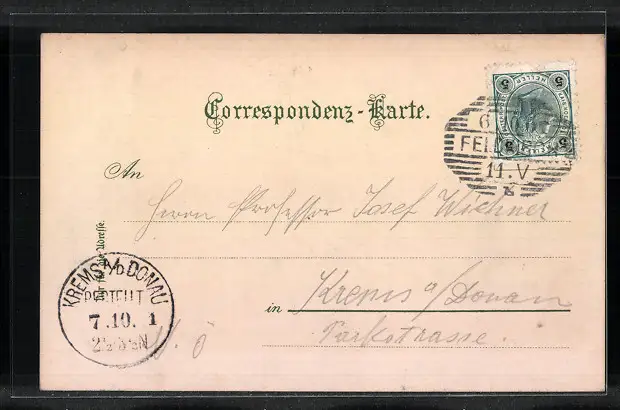 Correspondenz-Karte.
5 5
HELLER
6
FEL
11.V
An
Herrn Professor Josef Wichner
Nur für die Adresse.
in Krems a/Donau
Parkstrasse.
N. Ö
KREMS A/D DONAU
BESTELLT
7.10. 1
N